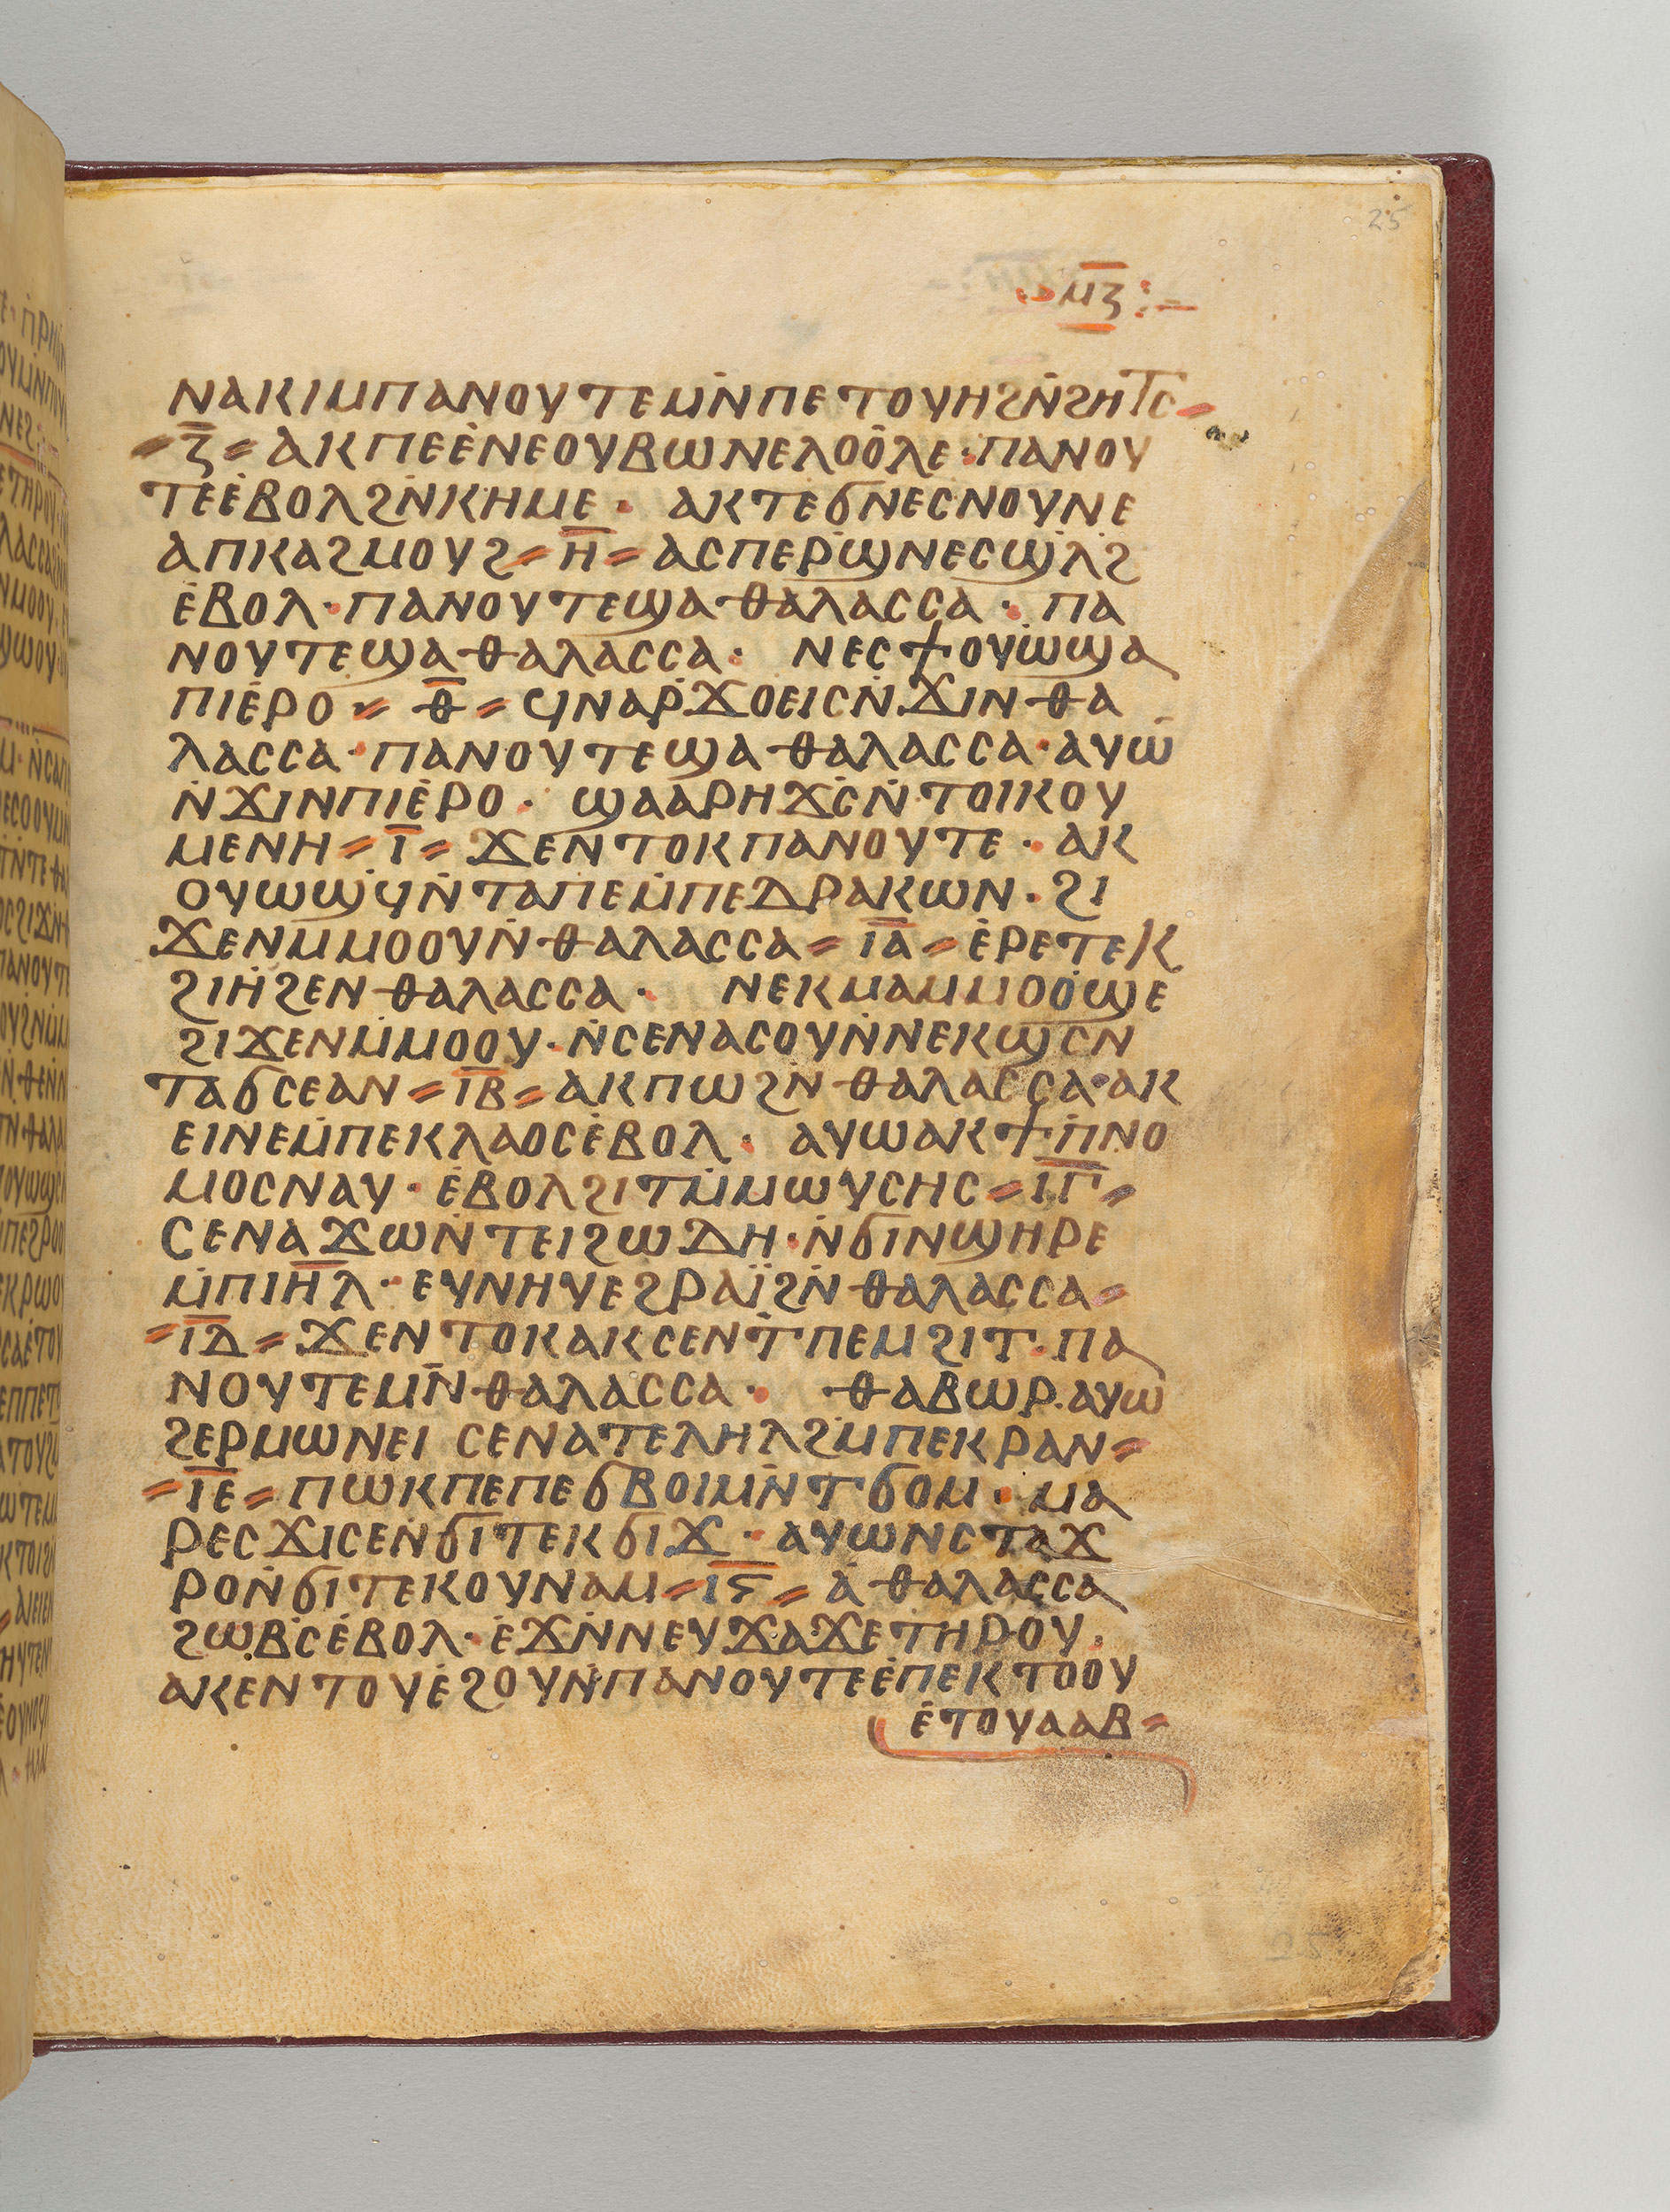 25
ⲙⲍ:-
ⲛⲁⲕⲓⲙⲡⲁⲛⲟⲩⲧⲉⲙ̇ⲛ̇ⲡⲉⲧⲟⲩⲏϩⲛ̇ϩⲏⲧⲥ=
=ⲍ̅=ⲁⲕⲡⲉⲉ̇ⲛⲉⲟⲩⲃⲱⲛⲉⲗⲟⲟ̇ⲗⲉ·ⲡⲁⲛⲟⲩ
ⲧⲉⲉ̇ⲃⲟⲗϩⲛ̇ⲕⲏⲙⲉ· ⲁⲕⲧⲉϭⲛⲉⲥⲛⲟⲩⲛⲉ
ⲁⲡⲕⲁϩⲙⲟⲩϩ=ⲏ̅=ⲁⲥⲡⲉⲣ̇ϣⲛⲉⲥϣ̇ⲗ̇ϩ
ⲉ̇ⲃⲟⲗ·ⲡⲁⲛⲟⲩⲧⲉϣⲁⲑⲁⲗⲁⲥⲥⲁ· ⲡⲁ
ⲛⲟⲩⲧⲉϣⲁⲑⲁⲗⲁⲥⲥⲁ· ⲛⲉⲥϯⲟⲩⲱ̇ϣⲁ
ⲡⲓⲉ̇ⲣⲟ=ⲑ̅=ϥⲛⲁⲣ̇ϫⲟⲉⲓⲥⲛ̇ϫⲓⲛⲑⲁ
ⲗⲁⲥⲥⲁ·ⲡⲁⲛⲟⲩⲧⲉϣⲁⲑⲁⲗⲁⲥⲥⲁ·ⲁⲩⲱ̅
ⲛ̇ϫⲓⲛⲡⲓⲉ̇ⲣⲟ· ϣⲁⲁⲣⲏϫⲥ̇ⲛ̇ⲧⲟⲓⲕⲟⲩ
ⲙⲉⲛⲏ=ⲓ̅=ϫⲉⲛ̇ⲧⲟⲕⲡⲁⲛⲟⲩⲧⲉ·ⲁⲕ
ⲟⲩⲱϣ̇ϥⲛ̇ⲧⲁⲡⲉⲙ̇ⲡⲉⲇⲣⲁⲕⲱⲛ·ϩⲓ
ϫⲉⲛⲙⲙⲟⲟⲩⲛ̇ⲑⲁⲗⲁⲥⲥⲁ=ⲓ̅ⲁ̅=ⲉ̇ⲣⲉⲧⲉⲕ
ϩⲓⲏ̇ϩⲉⲛⲑⲁⲗⲁⲥⲥⲁ· ⲛⲉⲕⲙⲁⲙⲙⲟⲟ̇ϣⲉ
ϩⲓϫⲉⲛⲙ̇ⲙⲟⲟⲩ·ⲛ̇ⲥⲉⲛⲁⲥⲟⲩⲛ̇ⲛⲉⲕϣⲥⲛ
ⲧⲁϭⲥⲉⲁⲛ=ⲓ̅ⲃ̅=ⲁⲕⲡⲱϩⲛ̇ⲑⲁⲗⲁⲥⲥⲁ·ⲁⲕ
ⲉⲓⲛⲉⲙ̇ⲡⲉⲕⲗⲁⲟⲥⲉ̇ⲃⲟⲗ· ⲁⲩⲱⲁⲕϯⲙ̇ⲡⲛⲟ
ⲙⲟⲥⲛⲁⲩ·ⲉ̇ⲃⲟⲗϩⲓⲧⲙ̇ⲙⲱⲩⲥⲏⲥ=ⲓ̅ⲅ̅=
ⲥⲉⲛⲁϫⲱⲛ̇ⲧⲉⲓϩⲱⲇⲏ·ⲛ̇ϭⲓⲛϣⲏⲣⲉ
ⲙ̇ⲡⲓⲏ̅ⲗ·ⲉⲩⲛⲏⲩⲉϩⲣⲁⲓ̈ϩⲛ̇ⲑⲁⲗⲁⲥⲥⲁ=
=ⲓ̅ⲇ̅=ϫⲉⲛⲧⲟⲕⲁⲕⲥⲉⲛⲧⲡⲉⲙϩⲓⲧ·ⲡⲁ
ⲛⲟⲩⲧⲉⲙⲛ̅ⲑⲁⲗⲁⲥⲥⲁ· ⲑⲁⲃⲱⲣ·ⲁⲩⲱ
ϩⲉⲣⲙⲱⲛⲉⲓ ⲥⲉⲛⲁⲧⲉⲗⲏⲗϩⲙ̇ⲡⲉⲕⲣⲁⲛ=
=ⲓ̅ⲉ̅=ⲡⲱⲕⲡⲉⲡⲉϭⲃⲟⲓⲙⲛ̇ⲧϭⲟⲙ·ⲙⲁ
ⲣⲉⲥϫⲓⲥⲉⲛ̇ϭⲓⲧⲉⲕϭⲓϫ·ⲁⲩⲱⲛⲥⲧⲁϫ
ⲣⲟⲛ̇ϭⲓⲧⲉⲕⲟⲩⲛⲁⲙ=ⲓ̅ⲋ̅=ⲁ̇ⲑⲁⲗⲁⲥⲥⲁ
ϩⲱⲃ̇ⲥⲉ̇ⲃⲟⲗ·ⲉ̇ϫⲛ̇ⲛⲉⲩϫⲁϫⲉⲧⲏⲣⲟⲩ·
ⲁⲕⲉⲛⲧⲟⲩⲉ̇ϩⲟⲩⲛ̇ⲡⲁⲛⲟⲩⲧⲉⲉ̇ⲡⲉⲕⲧⲟⲟⲩ
ⲉ̇ⲧⲟⲩⲁⲁⲃ=